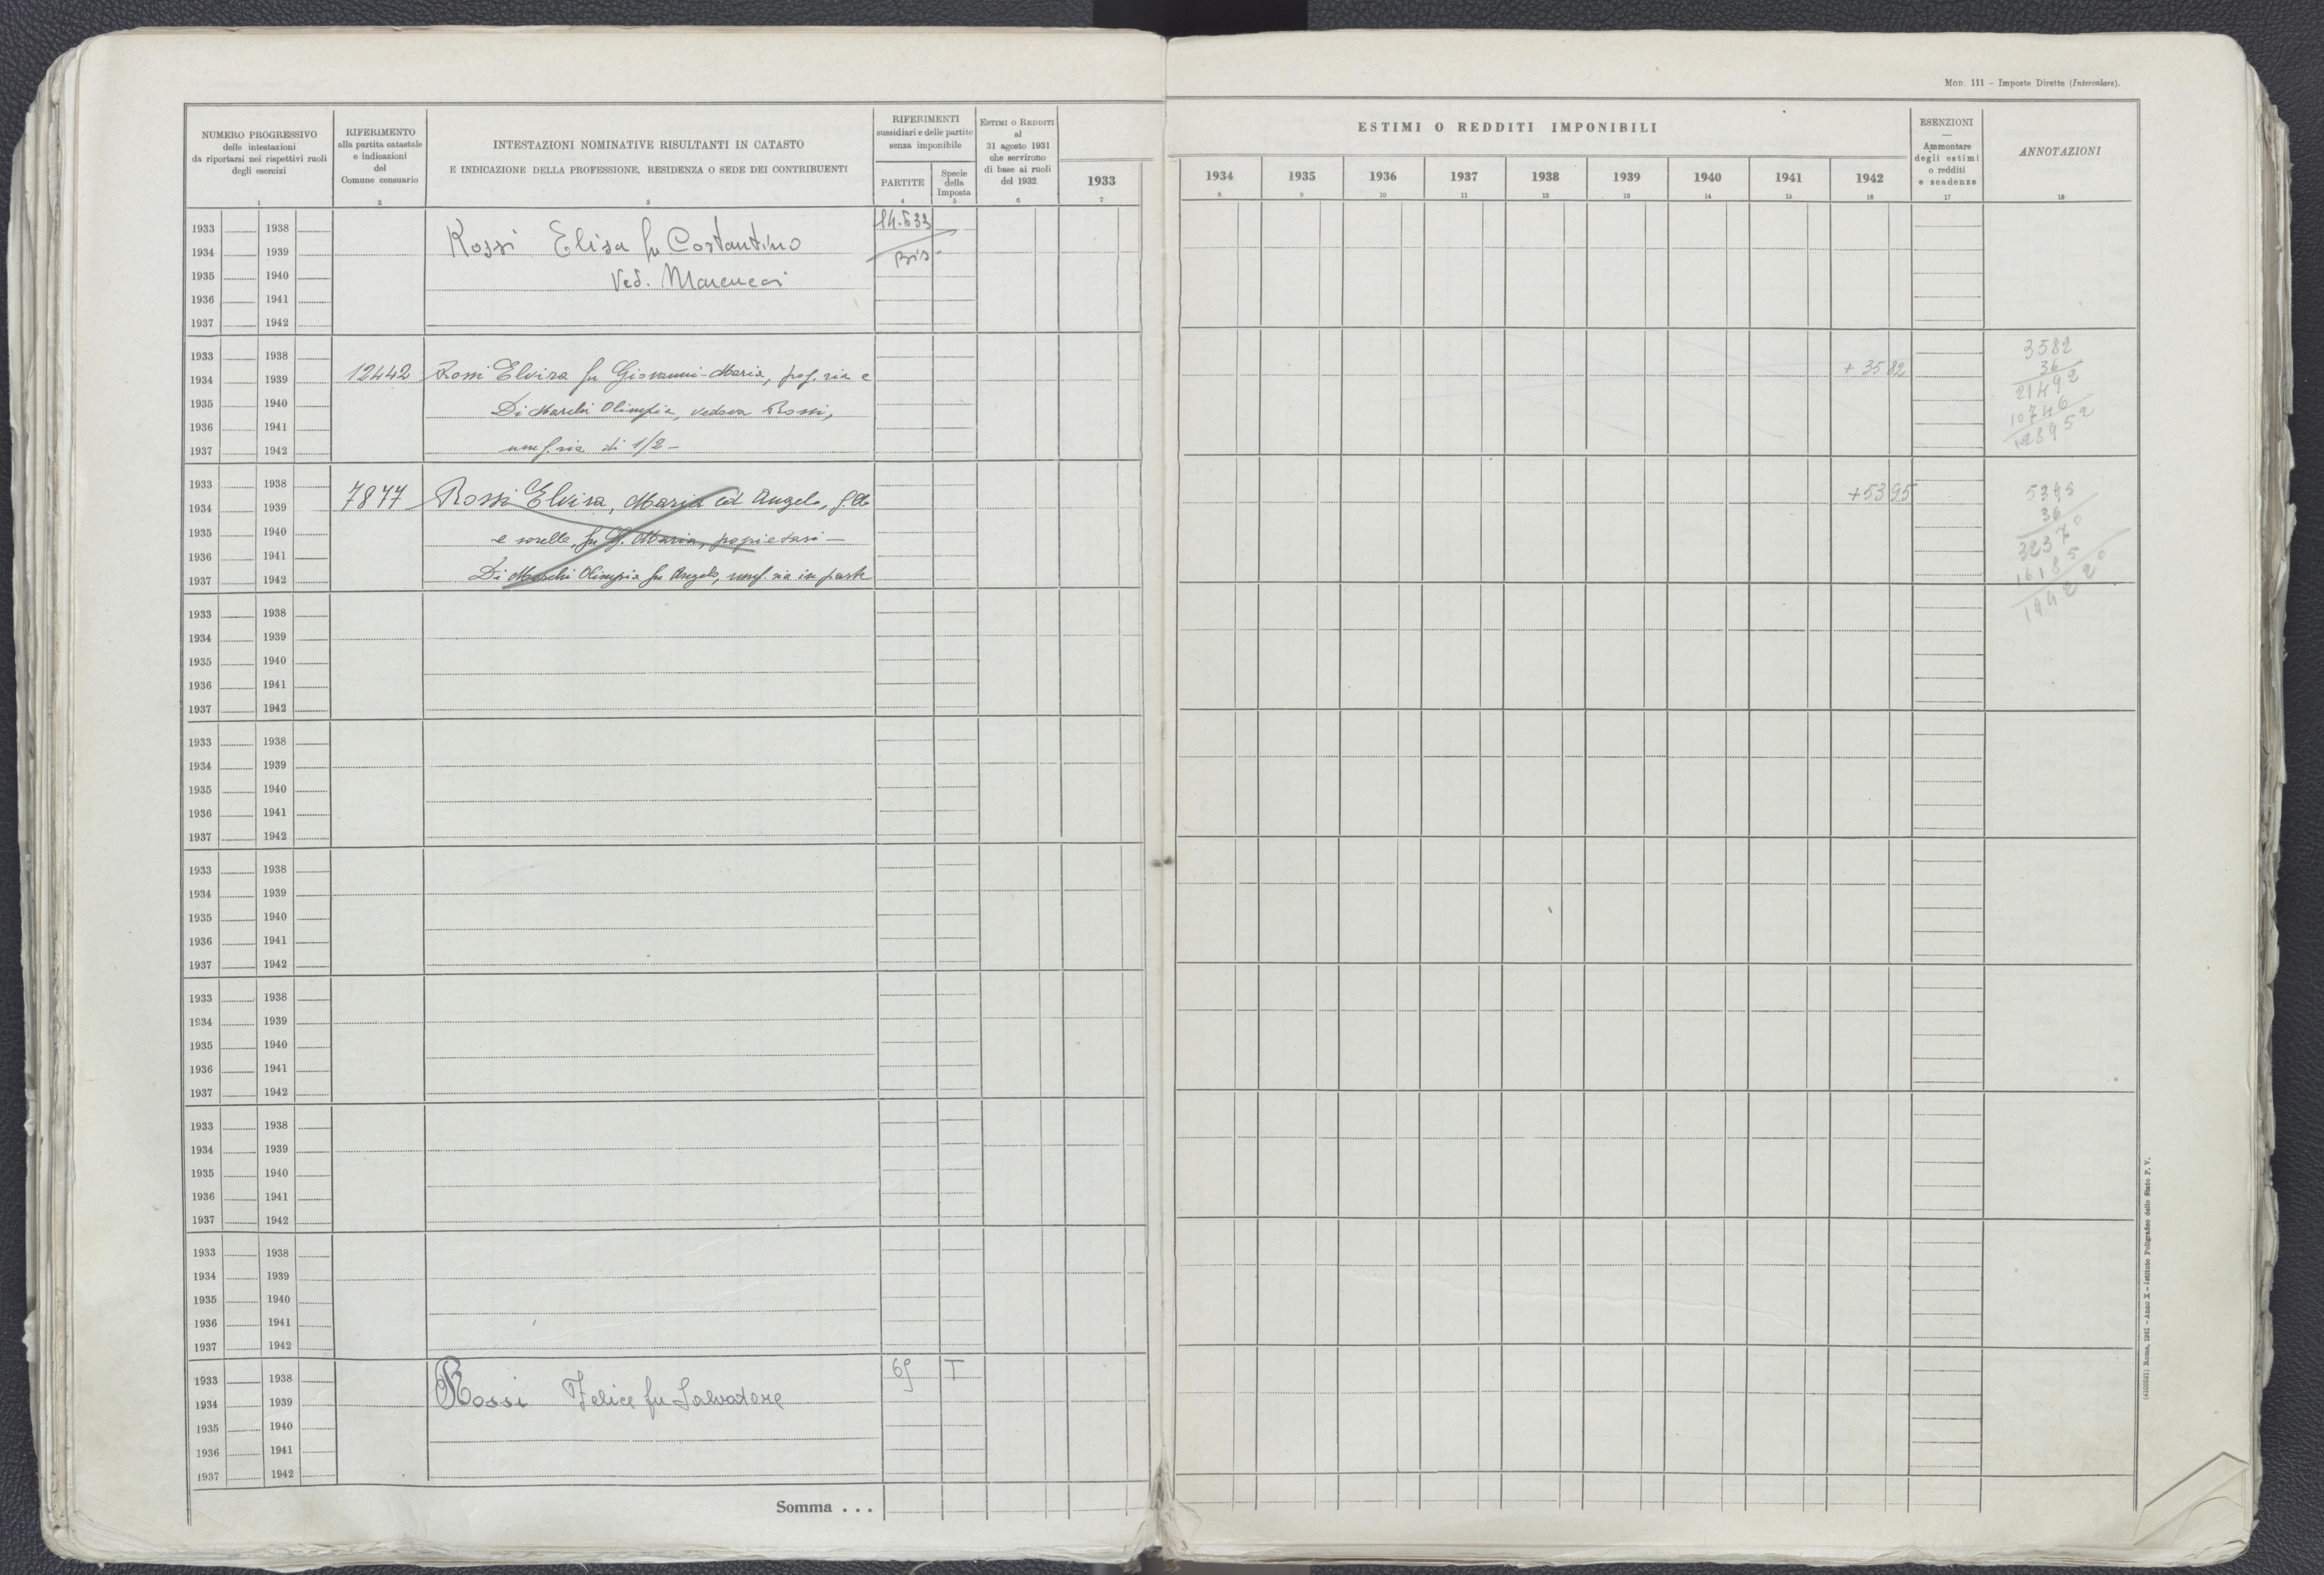 Mod. 111 - Imposte Dirette (Intercalare).
NUMERO PROGRESSIVO
delle intestazioni
da riportarsi nei rispettivi ruoli
degli esercizi
1
RIFERIMENTO
alla partita catastale
e indicazioni
del
Comune censuario
2
INTESTAZIONI NOMINATIVE RISULTANTI IN CATASTO
E INDICAZIONE DELLA PROFESSIONE, RESIDENZA O SEDE DEI CONTRIBUENTI
3
RIFERIMENTI
sussidiari e delle partite
senza imponibile
PARTITE
4
Specie
della
Imposta
5
ESTIMI O REDDITI
al
31 agosto 1931
che servirono
di base ai ruoli
del 1932
6
ESTIMI O REDDITI IMPONIBILI
1933 1934 1935 1936 1937 1938 1939 1940 1941 1942
7 8 9 10 11 12 13 14 15 16
ESENZIONI
—
Ammontare
degli estimi
o redditi
e scadenze
17
ANNOTAZIONI
18
1933 1938
1934 1939
1935 1940
1936 1941
1937 1942
Rossi Elisa fu Costantino
Ved. Marcucci
14.533
Bis
1933 1938
1934 1939
1935 1940
1936 1941
1937 1942
12442 Rossi Elvira fu Giovanni-Maria, prop.ria e
Di Marchi Olimpia, vedova Rossi,
usuf.ria di 1/2 -
+ 3582
3582
36
21492
10746
128952
1933 1938
1934 1939
1935 1940
1936 1941
1937 1942
7877 Rossi Elvira, Maria ed Angelo, f.llo
e sorelle, fu G. Maria, proprietari —
Di Marchi Olimpia fu Angelo, usuf.ria in parte
+5395
5395
36
32370
16185
194220
1933 1938
1934 1939
1935 1940
1936 1941
1937 1942
1933 1938
1934 1939
1935 1940
1936 1941
1937 1942
1933 1938
1934 1939
1935 1940
1936 1941
1937 1942
1933 1938
1934 1939
1935 1940
1936 1941
1937 1942
1933 1938
1934 1939
1935 1940
1936 1941
1937 1942
1933 1938
1934 1939
1935 1940
1936 1941
1937 1942
1933 1938
1934 1939
1935 1940
1936 1941
1937 1942
Rossi Felice fu Salvatore
69 T
Somma . . .
Roma, 1931 - Anno X - Istituto Poligrafico dello Stato P. V.